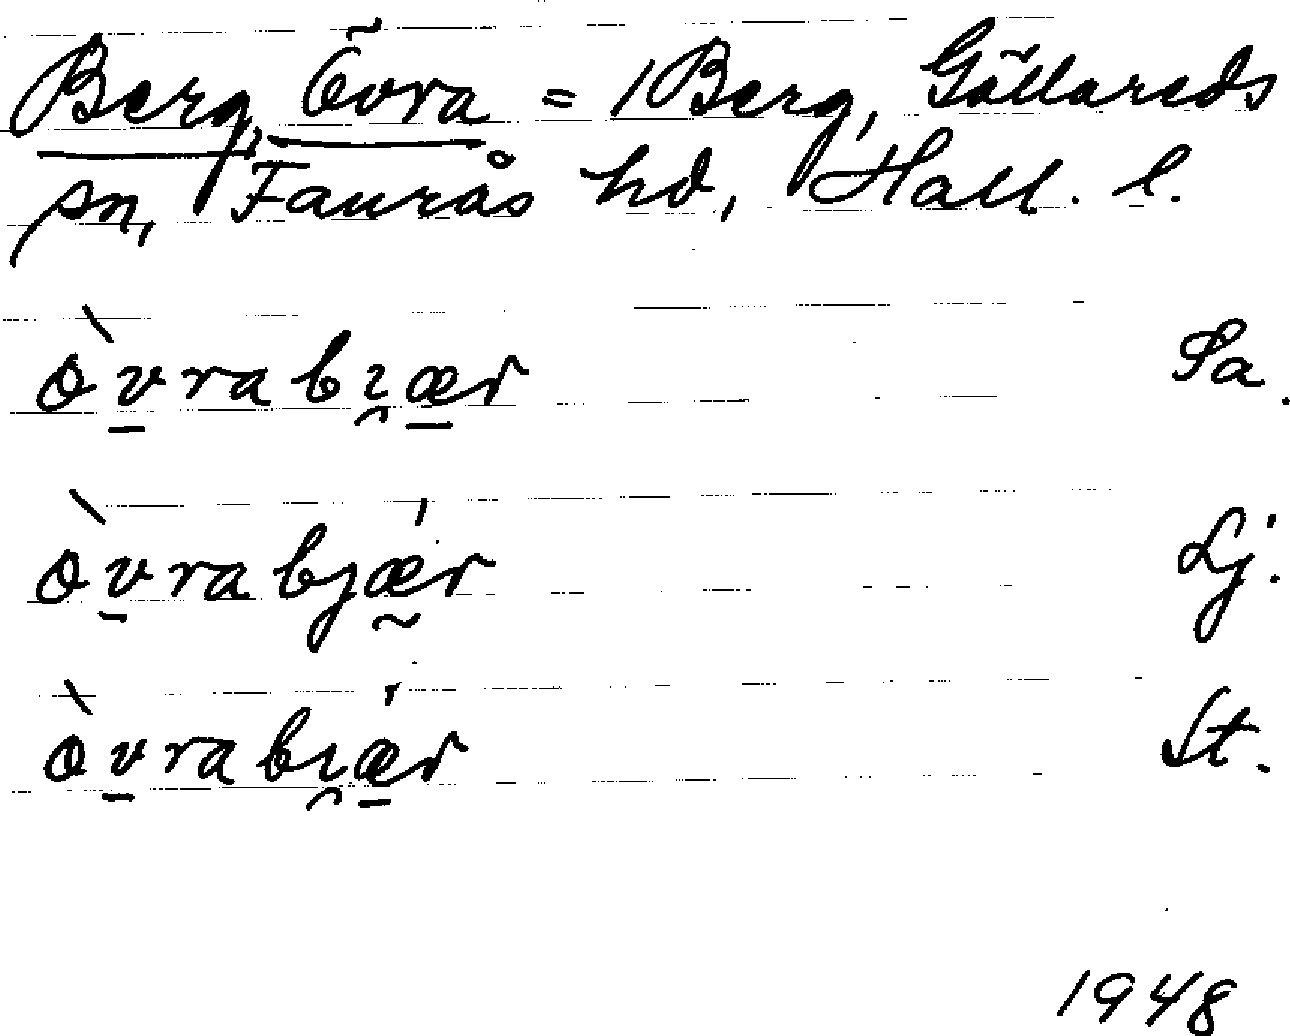 Berg, Övra = 1 Berg, Gällareds
sn, Faurås hd, Hall. l.
ò̱vrabi̯æ̱r Sa.
ò̱vrabjǽ̰r Lj.
ò̱vrabi̯ǽ̱r St.
1948